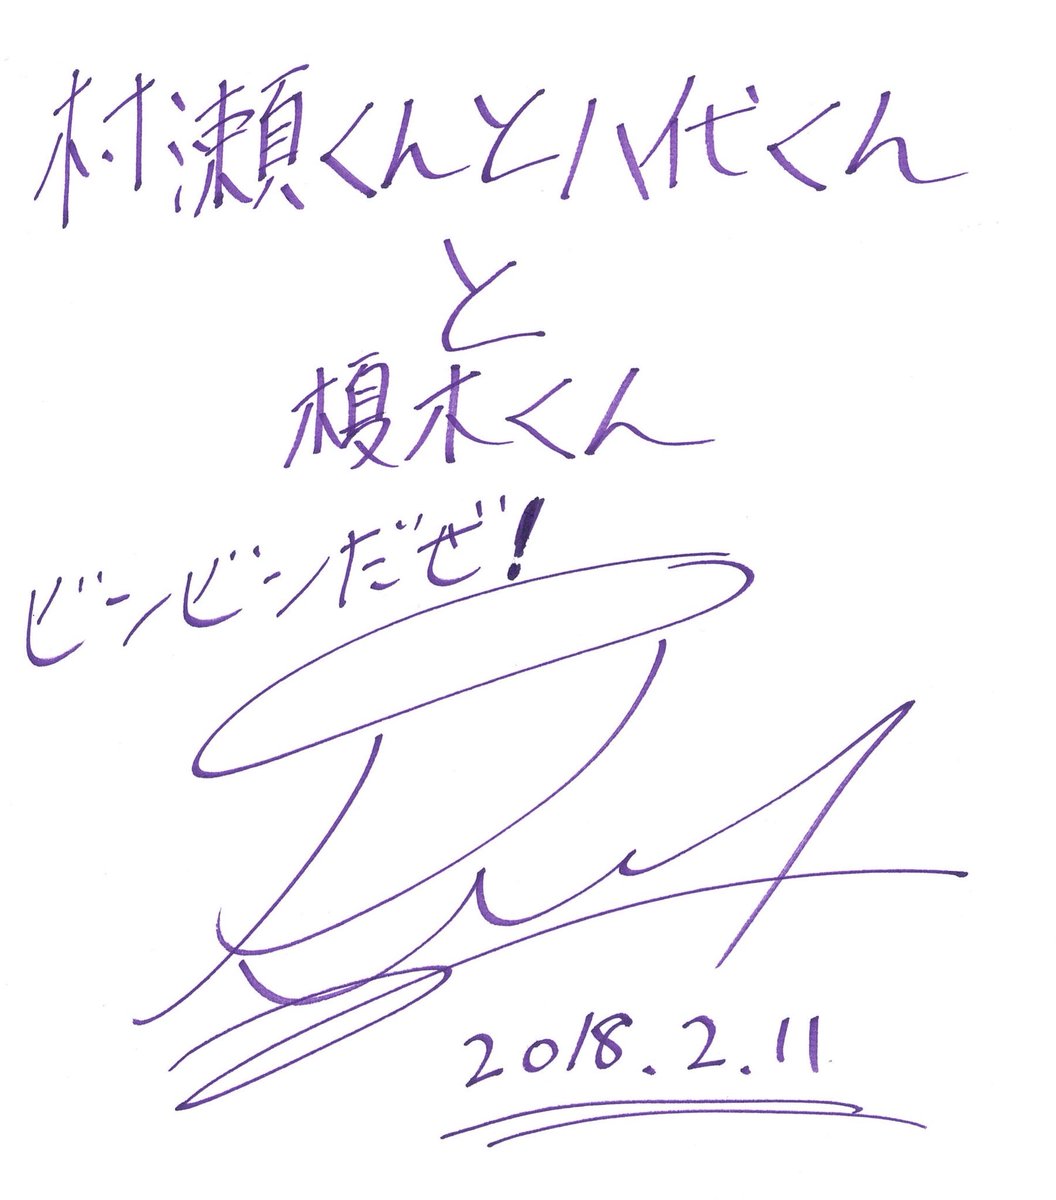 村瀬くんと八代くん
と
榎木くん
ビンビンだぜ!
2018.2.11